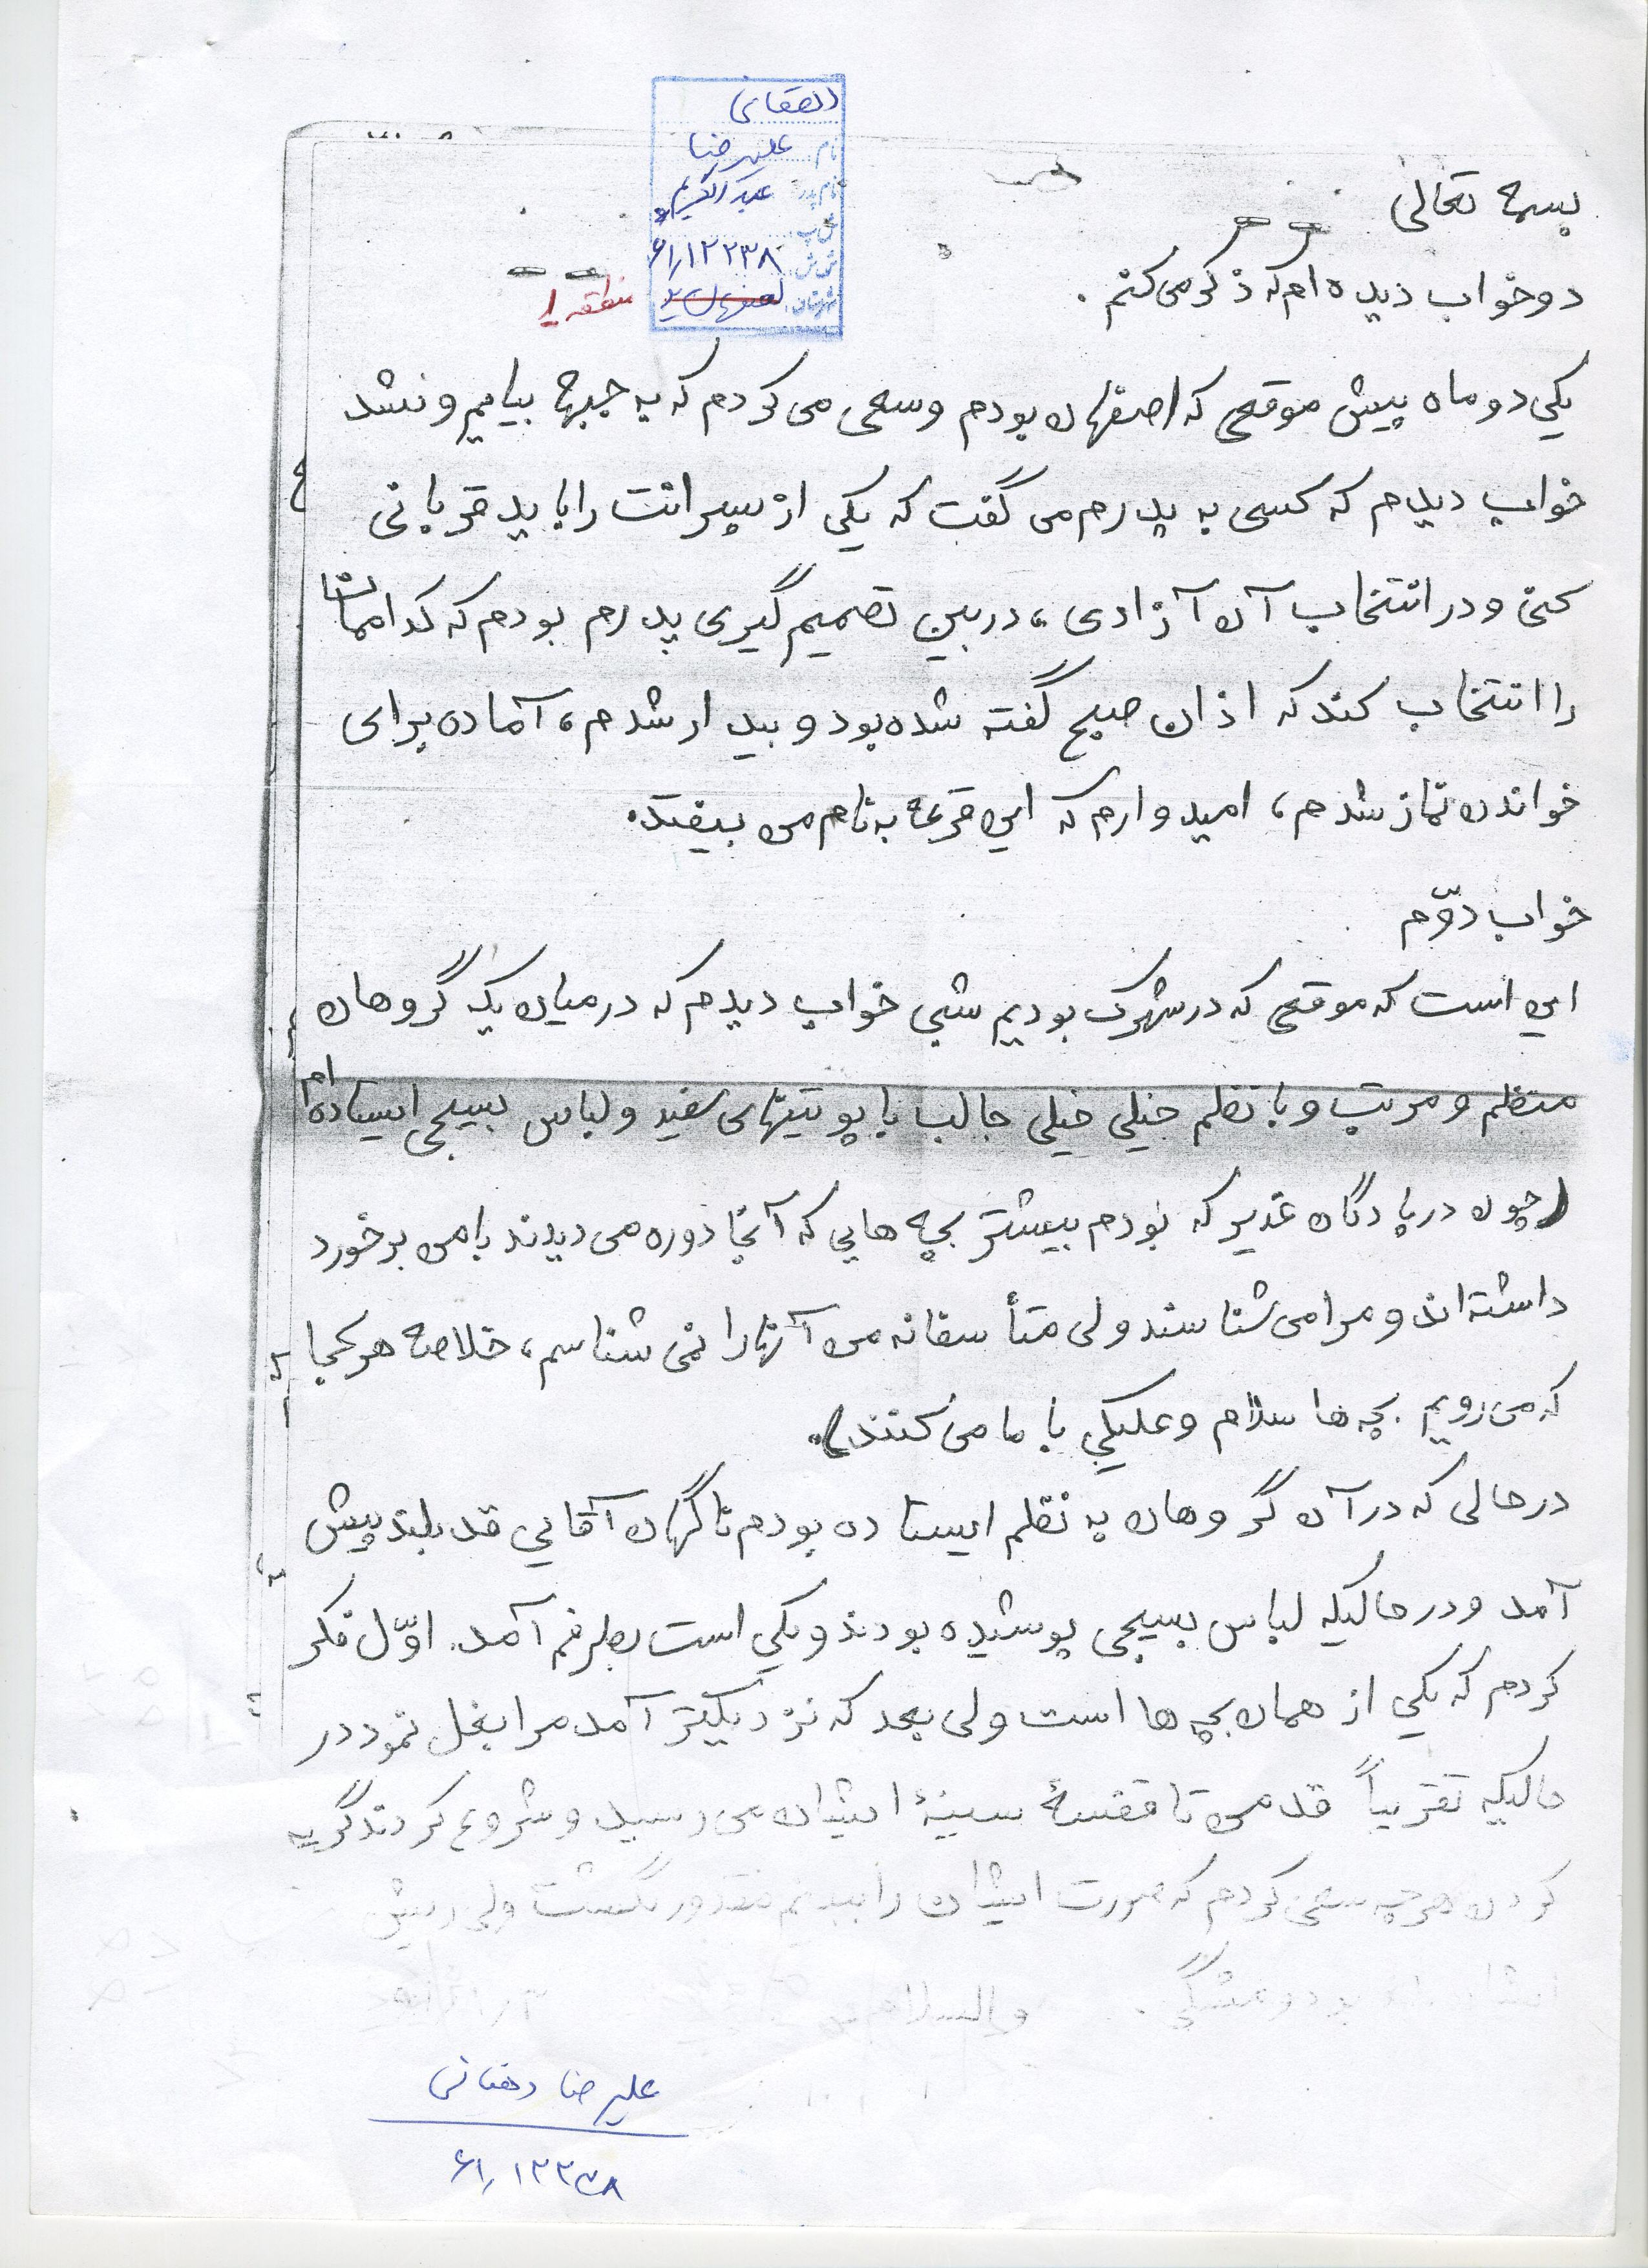 دهقانی
نام: علیرضا
نام پدر: عبدالکریم
ش پ:
ش ش: ۶۱٫۱۲۲۳۸
شهرستان: اصفهان
منطقه ۱
بسمه تعالی
دو خواب دیده ام که ذکر می کنم.
یکی دو ماه پیش موقعی که اصفهان بودم و سعی می کردم که به جبهه بیایم و نشد
خواب دیدم که کسی به پدرم می گفت که یکی از پسرانت را باید قربانی
کنی و در انتخاب آن آزادی، در بین تصمیم گیری پدرم بودم که کداممان
را انتخاب کند که اذان صبح گفته شده بود و بیدار شدم، آماده برای
خواندن نماز شدم، امیدوارم که این قرعه به نام من بیفتد.
خواب دوّم
این است که موقعی که در شهرک بودیم شبی خواب دیدم که در میان یک گروهان
منظم و مرتب و با نظم خیلی خیلی جالب با پوتینهای سفید و لباس بسیجی ایستاده ام
(چون در پادگان غدیر که بودم بیشتر بچه هایی که آنجا دوره می دیدند با من برخورد
داشته اند و مرا می شناسند ولی متأسفانه من آنها را نمی شناسم، خلاصه هر کجا
که می رویم بچه ها سلام و علیکی با ما می کنند).
در حالی که در آن گروهان به نظم ایستاده بودم ناگهان آقایی قد بلند پیش
آمد و در حالیکه لباس بسیجی پوشیده بودند و یکی است بطرفم آمد. اوّل فکر
کردم که یکی از همان بچه ها است ولی بعد که نزدیکتر آمد مرا بغل نمود در
حالیکه تقریباً قد من تا قفسۀ سینۀ ایشان می رسید و شروع کردند گریه
کردن هر چه سعی کردم که صورت ایشان را ببینم مقدور نگشت ولی ریش
بود و مشکی. والسلام
علیرضا دهقانی
۶۱٫۱۲۲۳۸